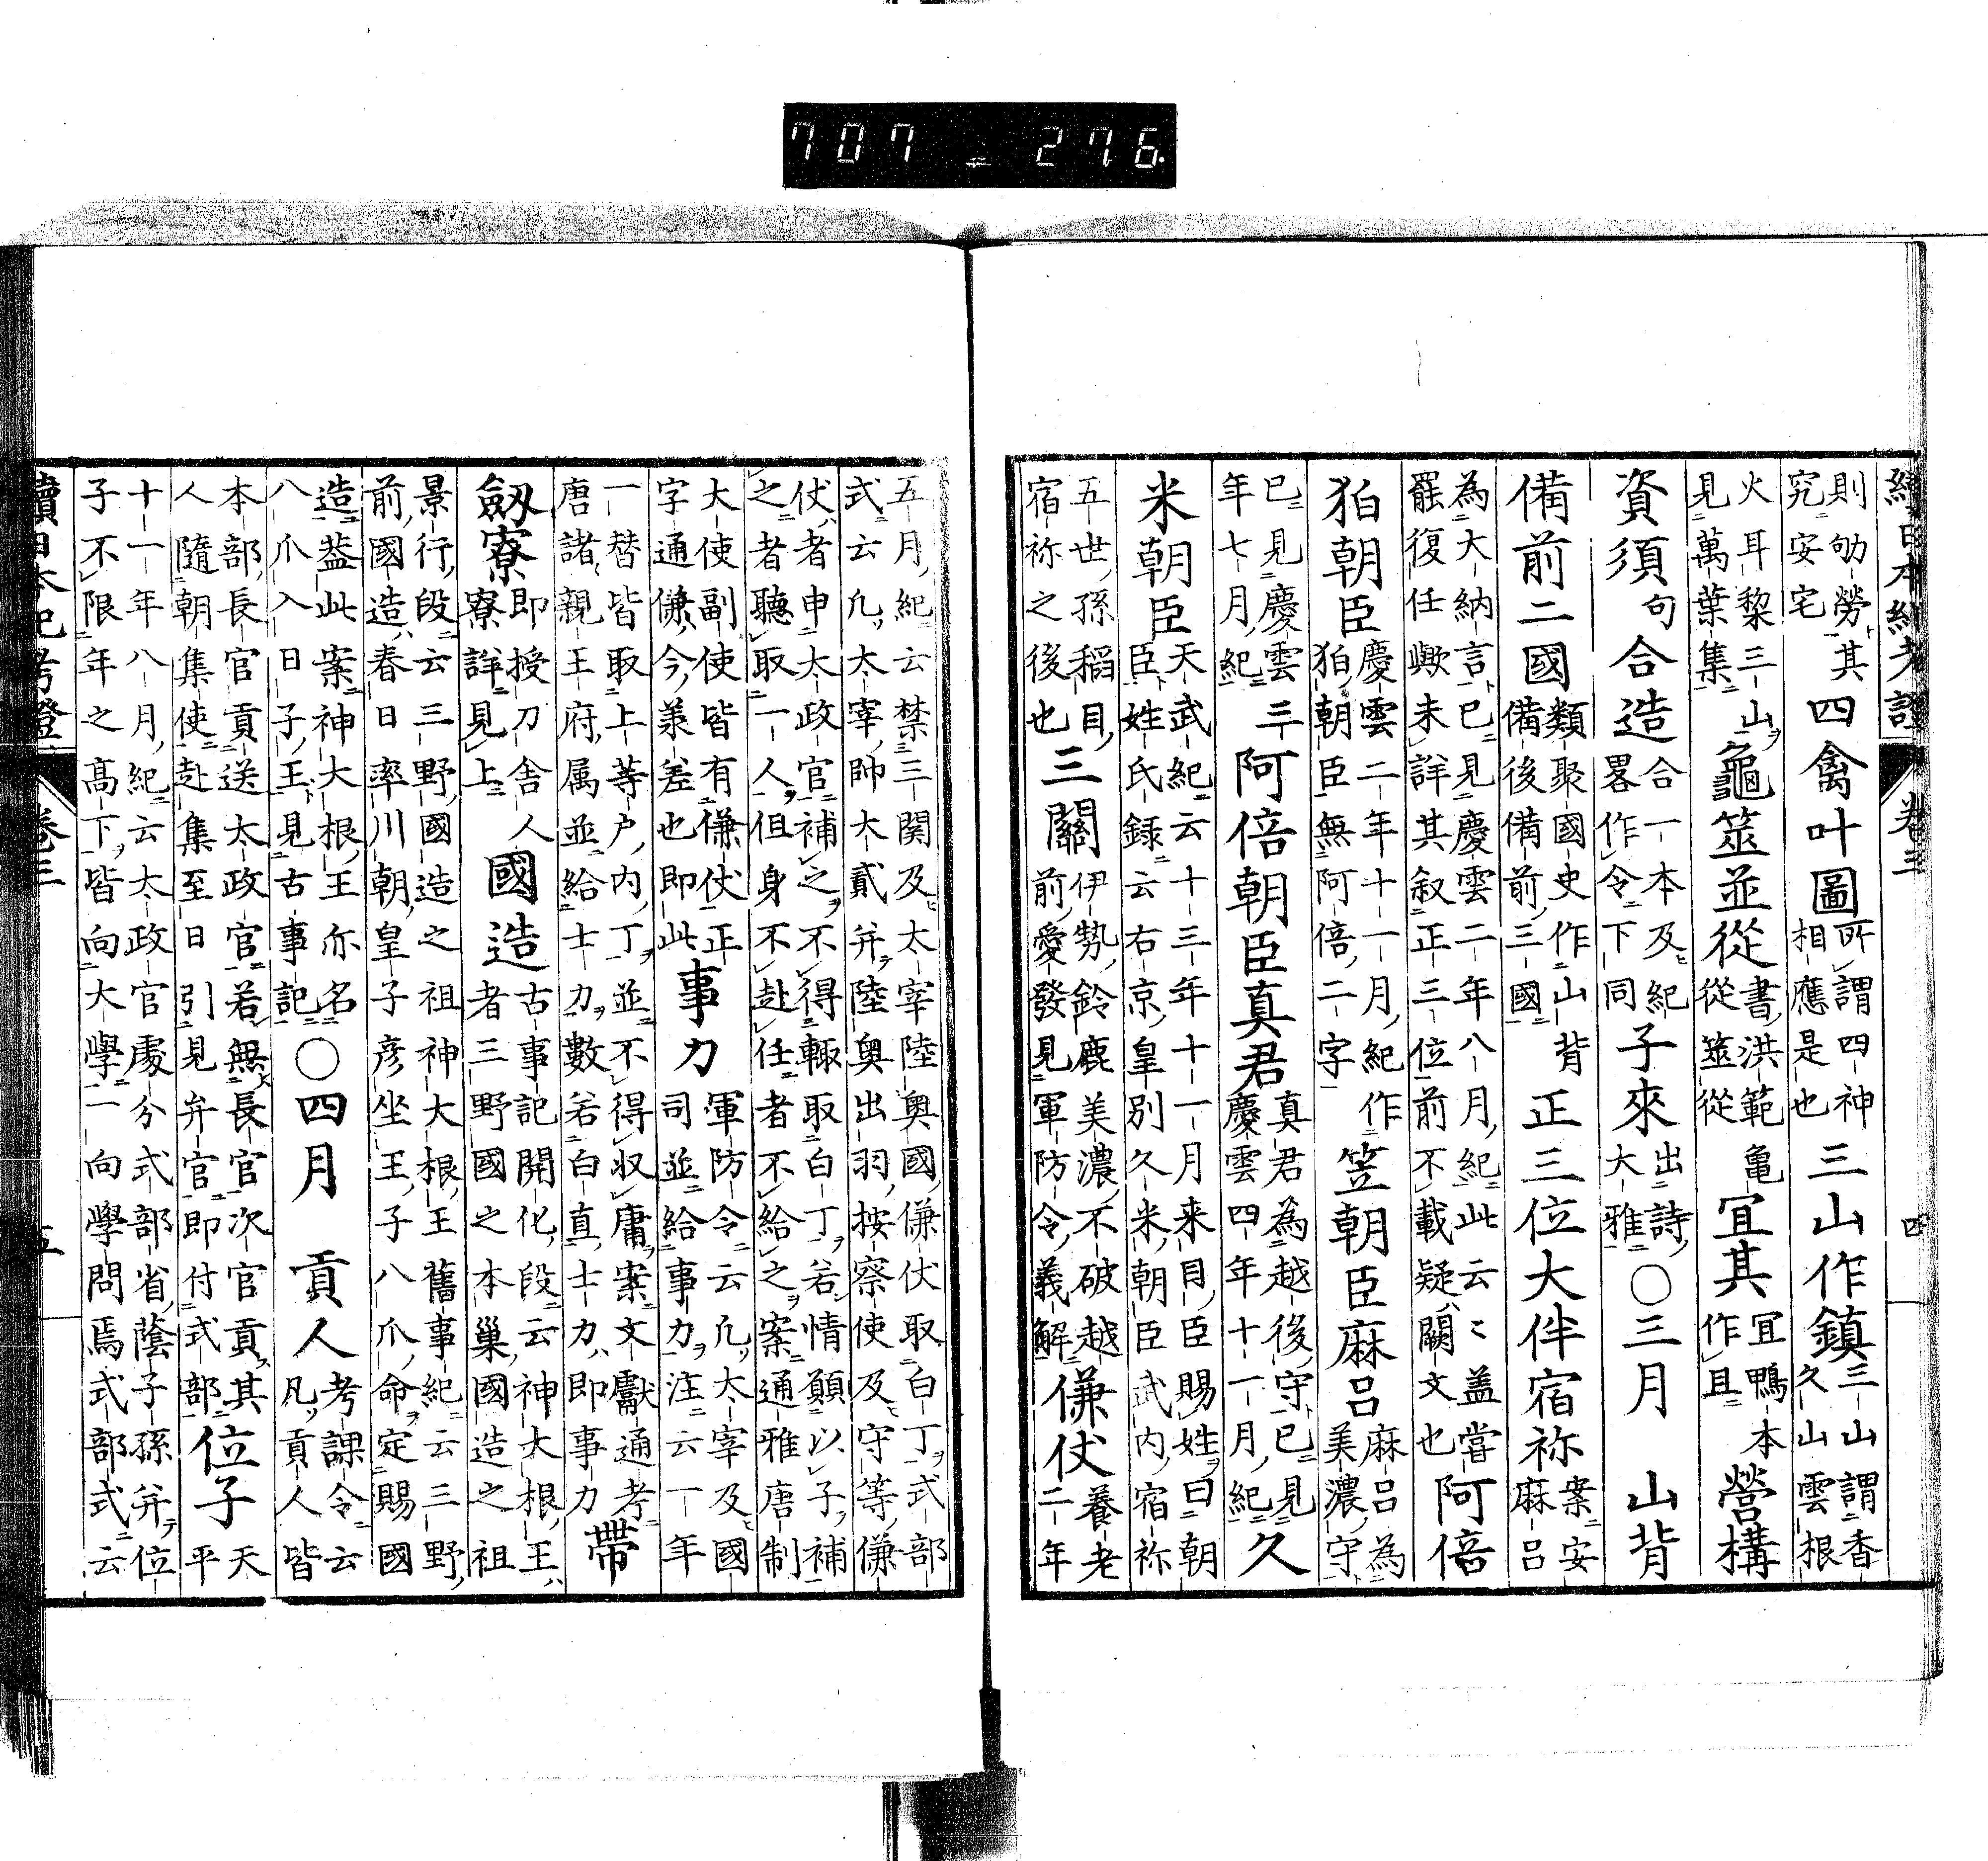 707-276.
續日本紀考證 卷三 四
則劬勞其
究安宅
四禽叶圖
所謂四神
相應是也
三山作鎮
三山謂香
久山雲根
火耳棃三山
見萬葉集
龜筮並從
書洪範龜
從筮從
宜其
宜鴨本
作且
營構
資須
句
合造
合一本及紀
畧作令下同
子來
出詩
大雅
○三月
山背
備前二國
類聚國史作山背
備後備前三國
正三位大伴宿祢
案安
麻呂
為大納言已見慶雲二年八月紀此云〻盖當
罷復任歟未詳其叙正三位前不載疑闕文也
阿倍
狛朝臣
慶雲二年十一月紀作
狛朝臣無阿倍二字
笠朝臣麻呂
麻呂為
美濃守
已見慶雲三
年七月紀
阿倍朝臣真君
真君為越後守已見
慶雲四年十一月紀
久
米朝臣
天武紀云十三年十一月来目臣賜姓曰朝
臣姓氏録云右京皇別久米朝臣武内宿祢
五世孫稻目
宿祢之後也
三關
伊勢鈴鹿美濃不破越
前愛發見軍防令義解
傔仗
養老
二年
五月紀云禁三関及太宰陸奥國傔仗取白丁式部
式云凡太宰帥大貳并陸奥出羽按察使及守等傔
仗者申太政官補之不得輙取白丁若情願以子補
之者聽取一人但身不赴任者不給之案通雅唐制
大使副使皆有傔仗正
字通傔今羨差也即此
事力
軍防令云凡太宰及國
司並給事力注云一年
一替皆取上等户内丁並不得収庸案文獻通考
唐諸親王府属並給士力數若白直士力即事力
帶
劔寮
即授刀舎人
寮詳見上
國造
古事記開化段云神大根王
者三野國之本巢國造之祖
景行段云三野國造之祖神大根王舊事紀云三野
前國造春日率川朝皇子彦坐王子八爪命定賜國
造葢此案神大根王亦名
八爪入日子王見古事記
○四月
貢人
考課令云
凡貢人皆
本部長官貢送太政官若無長官次官貢其
人隨朝集使赴集至日引見弁官即付式部
位子
天
平
十一年八月紀云太政官處分式部省蔭子孫并位
子不限年之高下皆向大學一向學問焉式部式云
續日本紀考證 卷三 五